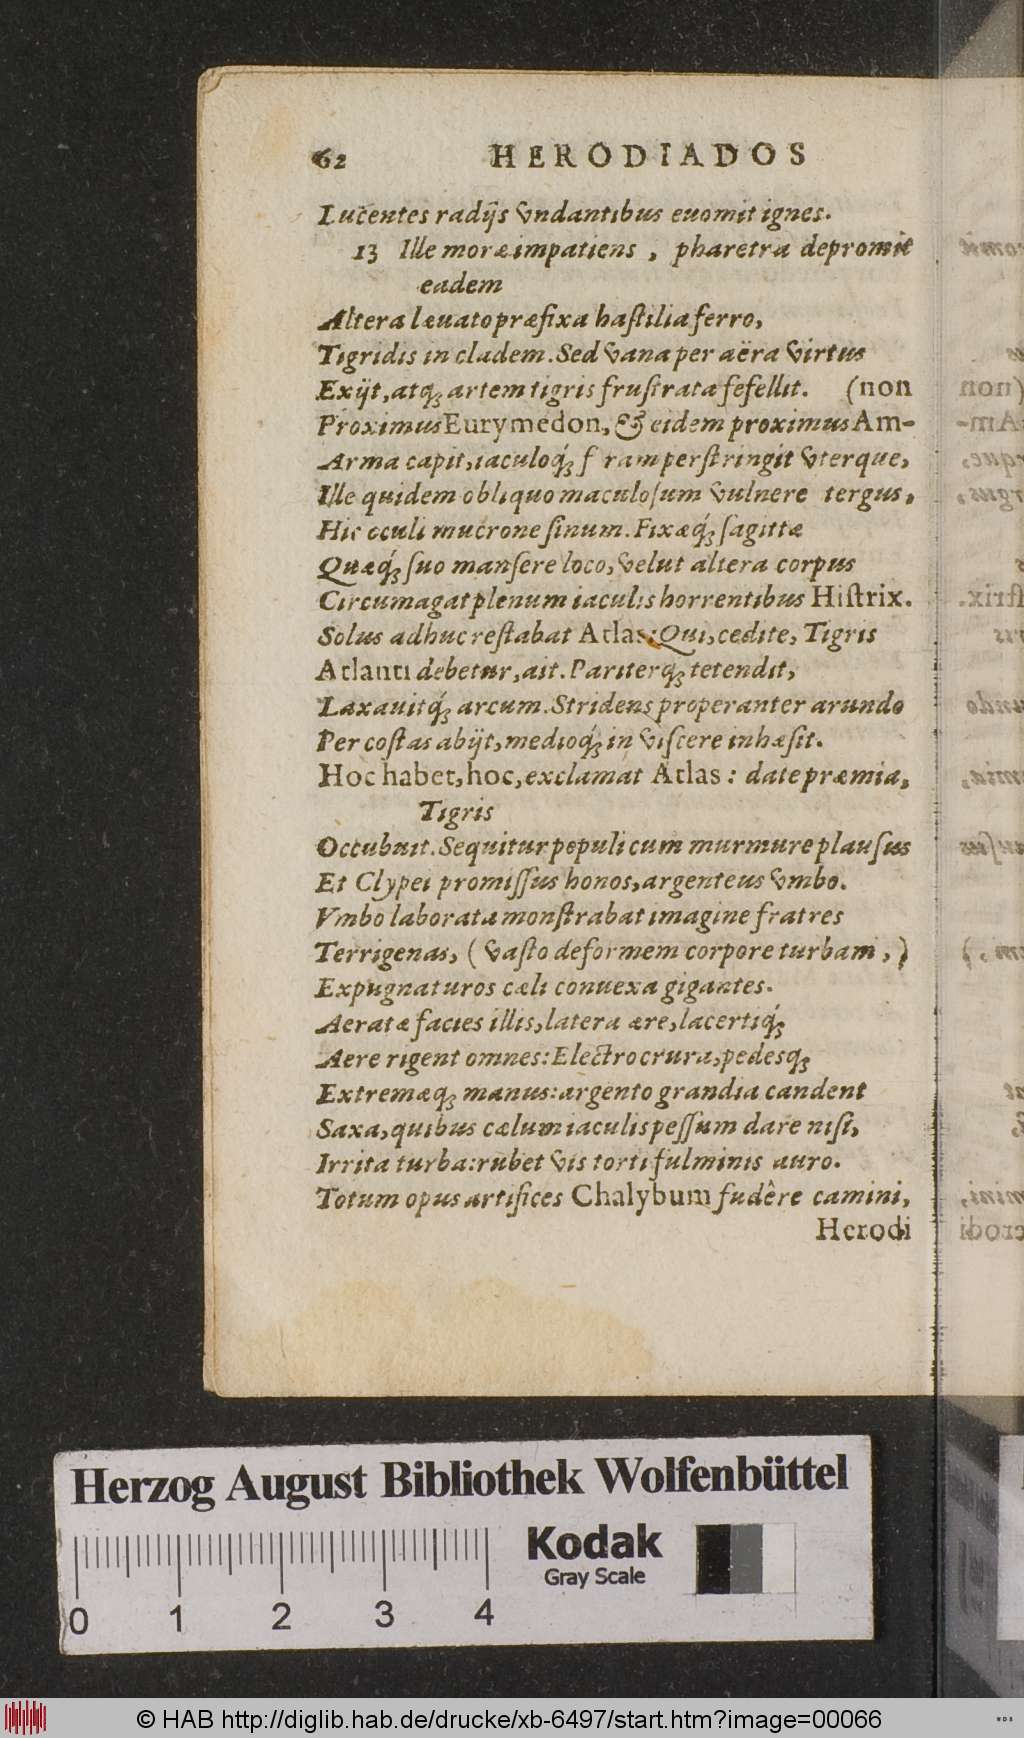 62 HERODIADOS
Lucentes radijs vndantibus euomit ignes.
13 Ille moræ impatiens, pharetra depromit
eadem
Altera læuato præfixa hastilia ferro,
Tigridis in cladem. Sed vana per aëra virtus
Exijt, atq; artem tigris frustrata fefellit. (non
Proximus Eurymedon, & eidem proximus Am-
Arma capit, iaculoq́; f ram perstringit vterque,
Ille quidem obliquo maculosum vulnere tergus,
Hic oculi mucrone sinum. Fixæq́; sagittæ
Quæq́; suo mansere loco, velut altera corpus
Circumagat plenum iaculis horrentibus Histrix.
Solus adhuc restabat Atlas: Qui, cedite, Tigris
Atlanti debetur, ait. Pariterq; tetendit,
Laxauitq́; arcum. Stridens properanter arundo
Per costas abijt, medioq́; in viscere inhæsit.
Hoc habet, hoc, exclamat Atlas: date præmia,
Tigris
Occubuit. Sequitur populi cum murmure plausus
Et Clypei promissus honos, argenteus vmbo.
Vmbo laborata monstrabat imagine fratres
Terrigenas, (vasto deformem corpore turbam,)
Expugnaturos cæli conuexa gigantes.
Aeratæ facies illis, latera ære, lacertiq́;
Aere rigent omnes: Electro crura, pedesq;
Extremæq; manus: argento grandia candent
Saxa, quibus cælum iaculis pessum dare nisi,
Irrita turba: rubet vis torti fulminis auro.
Totum opus artifices Chalybum fudêre camini,
Herodi
Herzog August Bibliothek Wolfenbüttel
Kodak
Gray Scale
0 1 2 3 4
© HAB http://diglib.hab.de/drucke/xb-6497/start.htm?image=00066